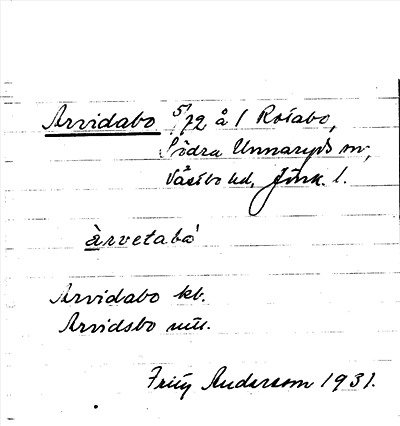 Arvidabo 5/72 å 1 Rosabo,
Södra Unnaryds sn,
Västbo hd, Jönk. l.
àrvetabá
Arvidabo kb.
Arvidsbo
Andersson 1931.